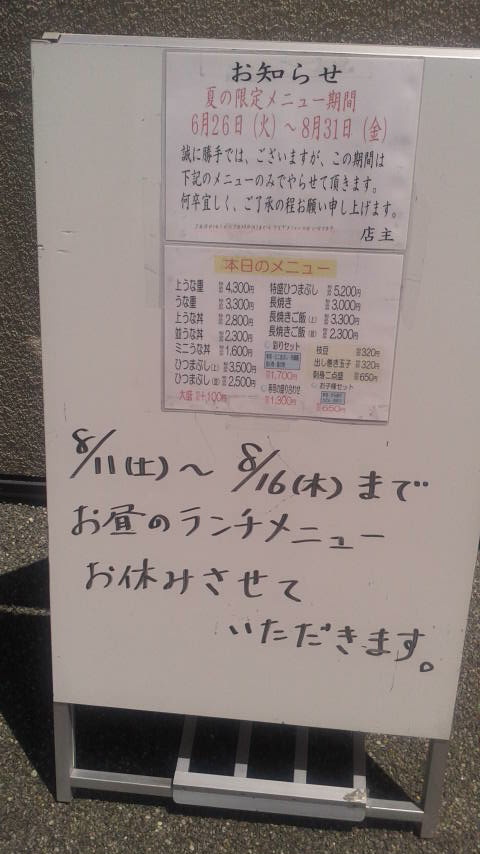 お知らせ
夏の限定メニュー期間
6月26日(火)〜8月31日(金)
誠に勝手では、ございますが、この期間は
下記のメニューのみでやらせて頂きます。
何卒宜しく、ご了承の程お願い申し上げます。
店主
本日のメニュー
上うな重 4,300円
うな重 3,300円
上うな丼 2,800円
並うな丼 2,300円
ミニうな丼 1,600円
ひつまぶし(上) 3,500円
ひつまぶし(並) 2,500円
大盛 +100円
特盛ひつまぶし 5,200円
長焼き 3,000円
長焼きご飯(上) 3,300円
長焼きご飯(並) 2,300円
彩りセット
1,700円
1,300円
枝豆 320円
出し巻き玉子 320円
刺身二点盛 650円
お子様セット
650円
8/11(土)〜8/16(木)まで
お昼のランチメニュー
お休みさせて
いただきます。